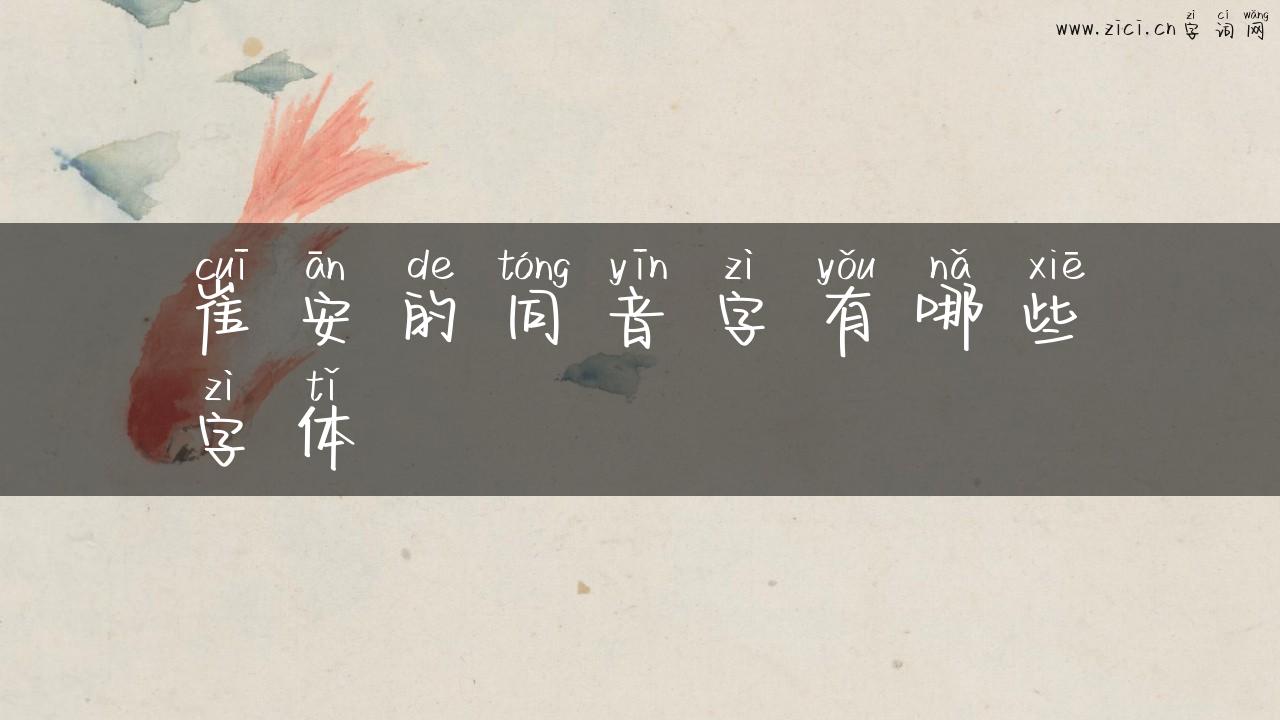 zì cí wǎng
www.zici.cn 字词网
cuī ān de tóng yīn zì yǒu nǎ xiē
崔安的同音字有哪些
zì tǐ
字体